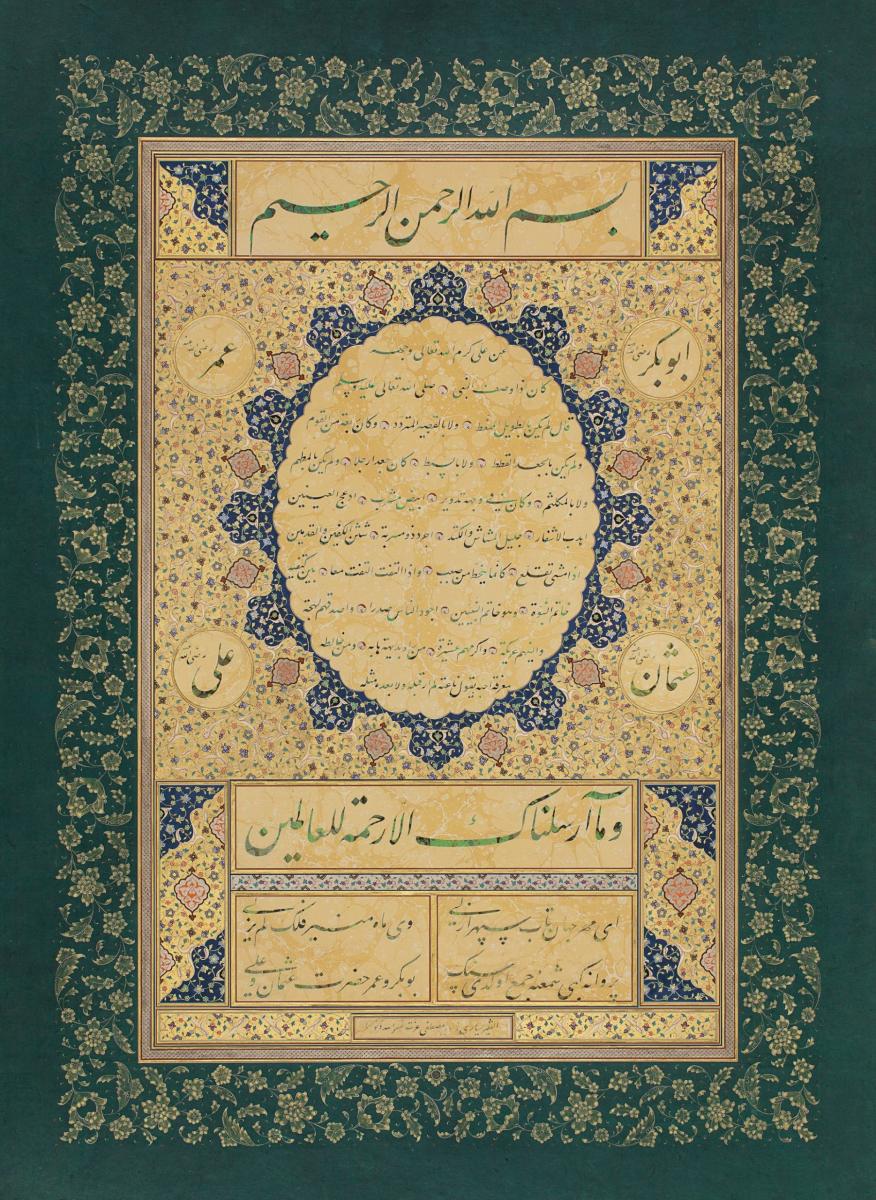 بسم الله الرحمن الرحيم
ابوبكر رضي الله عنه
عمر رضي الله عنه
عن علي كرم الله تعالى وجهه
كان اذا وصف النبي صلى الله تعالى عليه وسلم
قال لم يكن بالطويل الممغط ولا بالقصير المتردد وكان ربعة من القوم
ولم يكن بالجعد القطط ولا بالسبط كان جعدا رجلا ولم يكن بالمطهم
ولا بالمكلثم وكان في وجهه تدوير ابيض مشرب ادعج العينين
اهدب الاشفار جليل المشاش والكتد اجرد ذو مسربة شثن الكفين والقدمين
اذا مشى تقلع كانما ينحط من صبب واذا التفت التفت معا بين كتفيه
خاتم النبوة وهو خاتم النبيين اجود الناس صدرا واصدقهم لهجة
والينهم عريكة واكرمهم عشيرة من رآه بديهة هابه ومن خالطه
معرفة احبه يقول ناعته لم ار قبله ولا بعده مثله
عثمان رضي الله عنه
علي رضي الله عنه
وما آرسلناك الا رحمة للعالمين
اى مهر جهان تاب سپهر ازلى
وى ماه منير فلك لم يزلى
پروانه كبى شمعنه جمع اولدى سنك
بوبكر و عمر حضرت عثمان و على